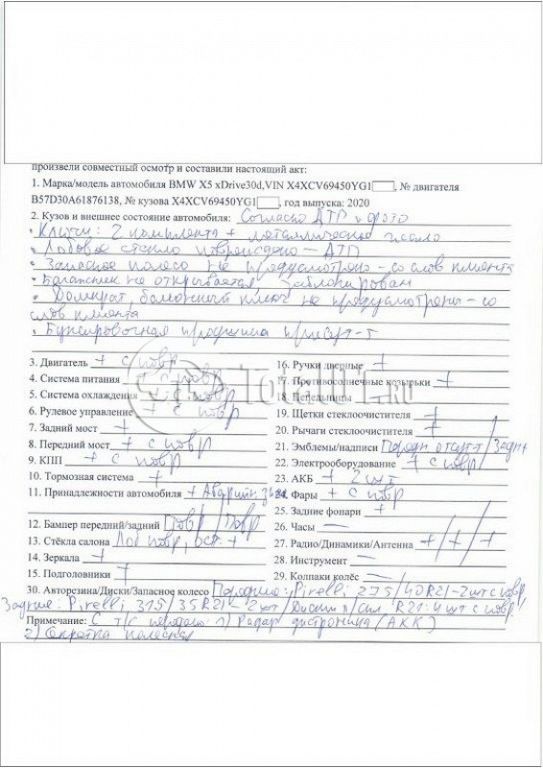 произвели совместный осмотр и составили настоящий акт:
1. Марка/модель автомобиля BMW X5 xDrive30d,VIN X4XCV69450YG1 , № двигателя
B57D30A61876138, № кузова X4XCV69450YG1 , год выпуска: 2020
2. Кузов и внешнее состояние автомобиля: Согласно ДТП и фото
• Ключи: 2 комплекта + металлическое
• Лобовое стекло повреждено – ДТП
• Запасное колесо не предусмотрено – со слов клиента
• Багажник не открывается заблокирован
• Домкрат, балонный ключ не предусмотрены – со
слов клиента
• Буксировочная проушина
3. Двигатель + с повр
4. Система питания + с повр
5. Система охлаждения + с повр
6. Рулевое управление + с повр
7. Задний мост +
8. Передний мост + с повр
9. КПП + с повр
10. Тормозная система +
11. Принадлежности автомобиля + Аварийн. знак
12. Бампер передний/задний Повр / Повр
13. Стёкла салона Лоб повр, ост. +
14. Зеркала +
15. Подголовники +
16. Ручки дверные +
17. Противосолнечные козырьки +
18. Пепельницы
19. Щетки стеклоочистителя +
20. Рычаги стеклоочистителя +
21. Эмблемы/надписи Передн отсут-т / Задн +
22. Электрооборудование + с повр
23. АКБ + 2 шт
24. Фары + с повр
25. Задние фонари +
26. Часы –
27. Радио/Динамики/Антенна +/+/+
28. Инструмент –
29. Колпаки колёс –
30. Авторезина/Диски/Запасное колесо Передние: Pirelli 275/40R21-2шт с повр,
Задние: Pirelli 315/35R21-2шт/Диски л/спл. R21: 4шт с повр.
Примечание: С т/с передано 1) Радар дистроника (АКК)
2) Секретка колесная
TOTAL01.RU